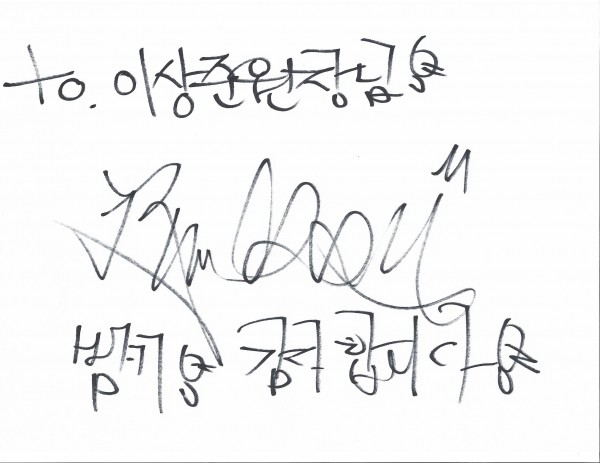 To. 이상준원장님
범키 감사합니다